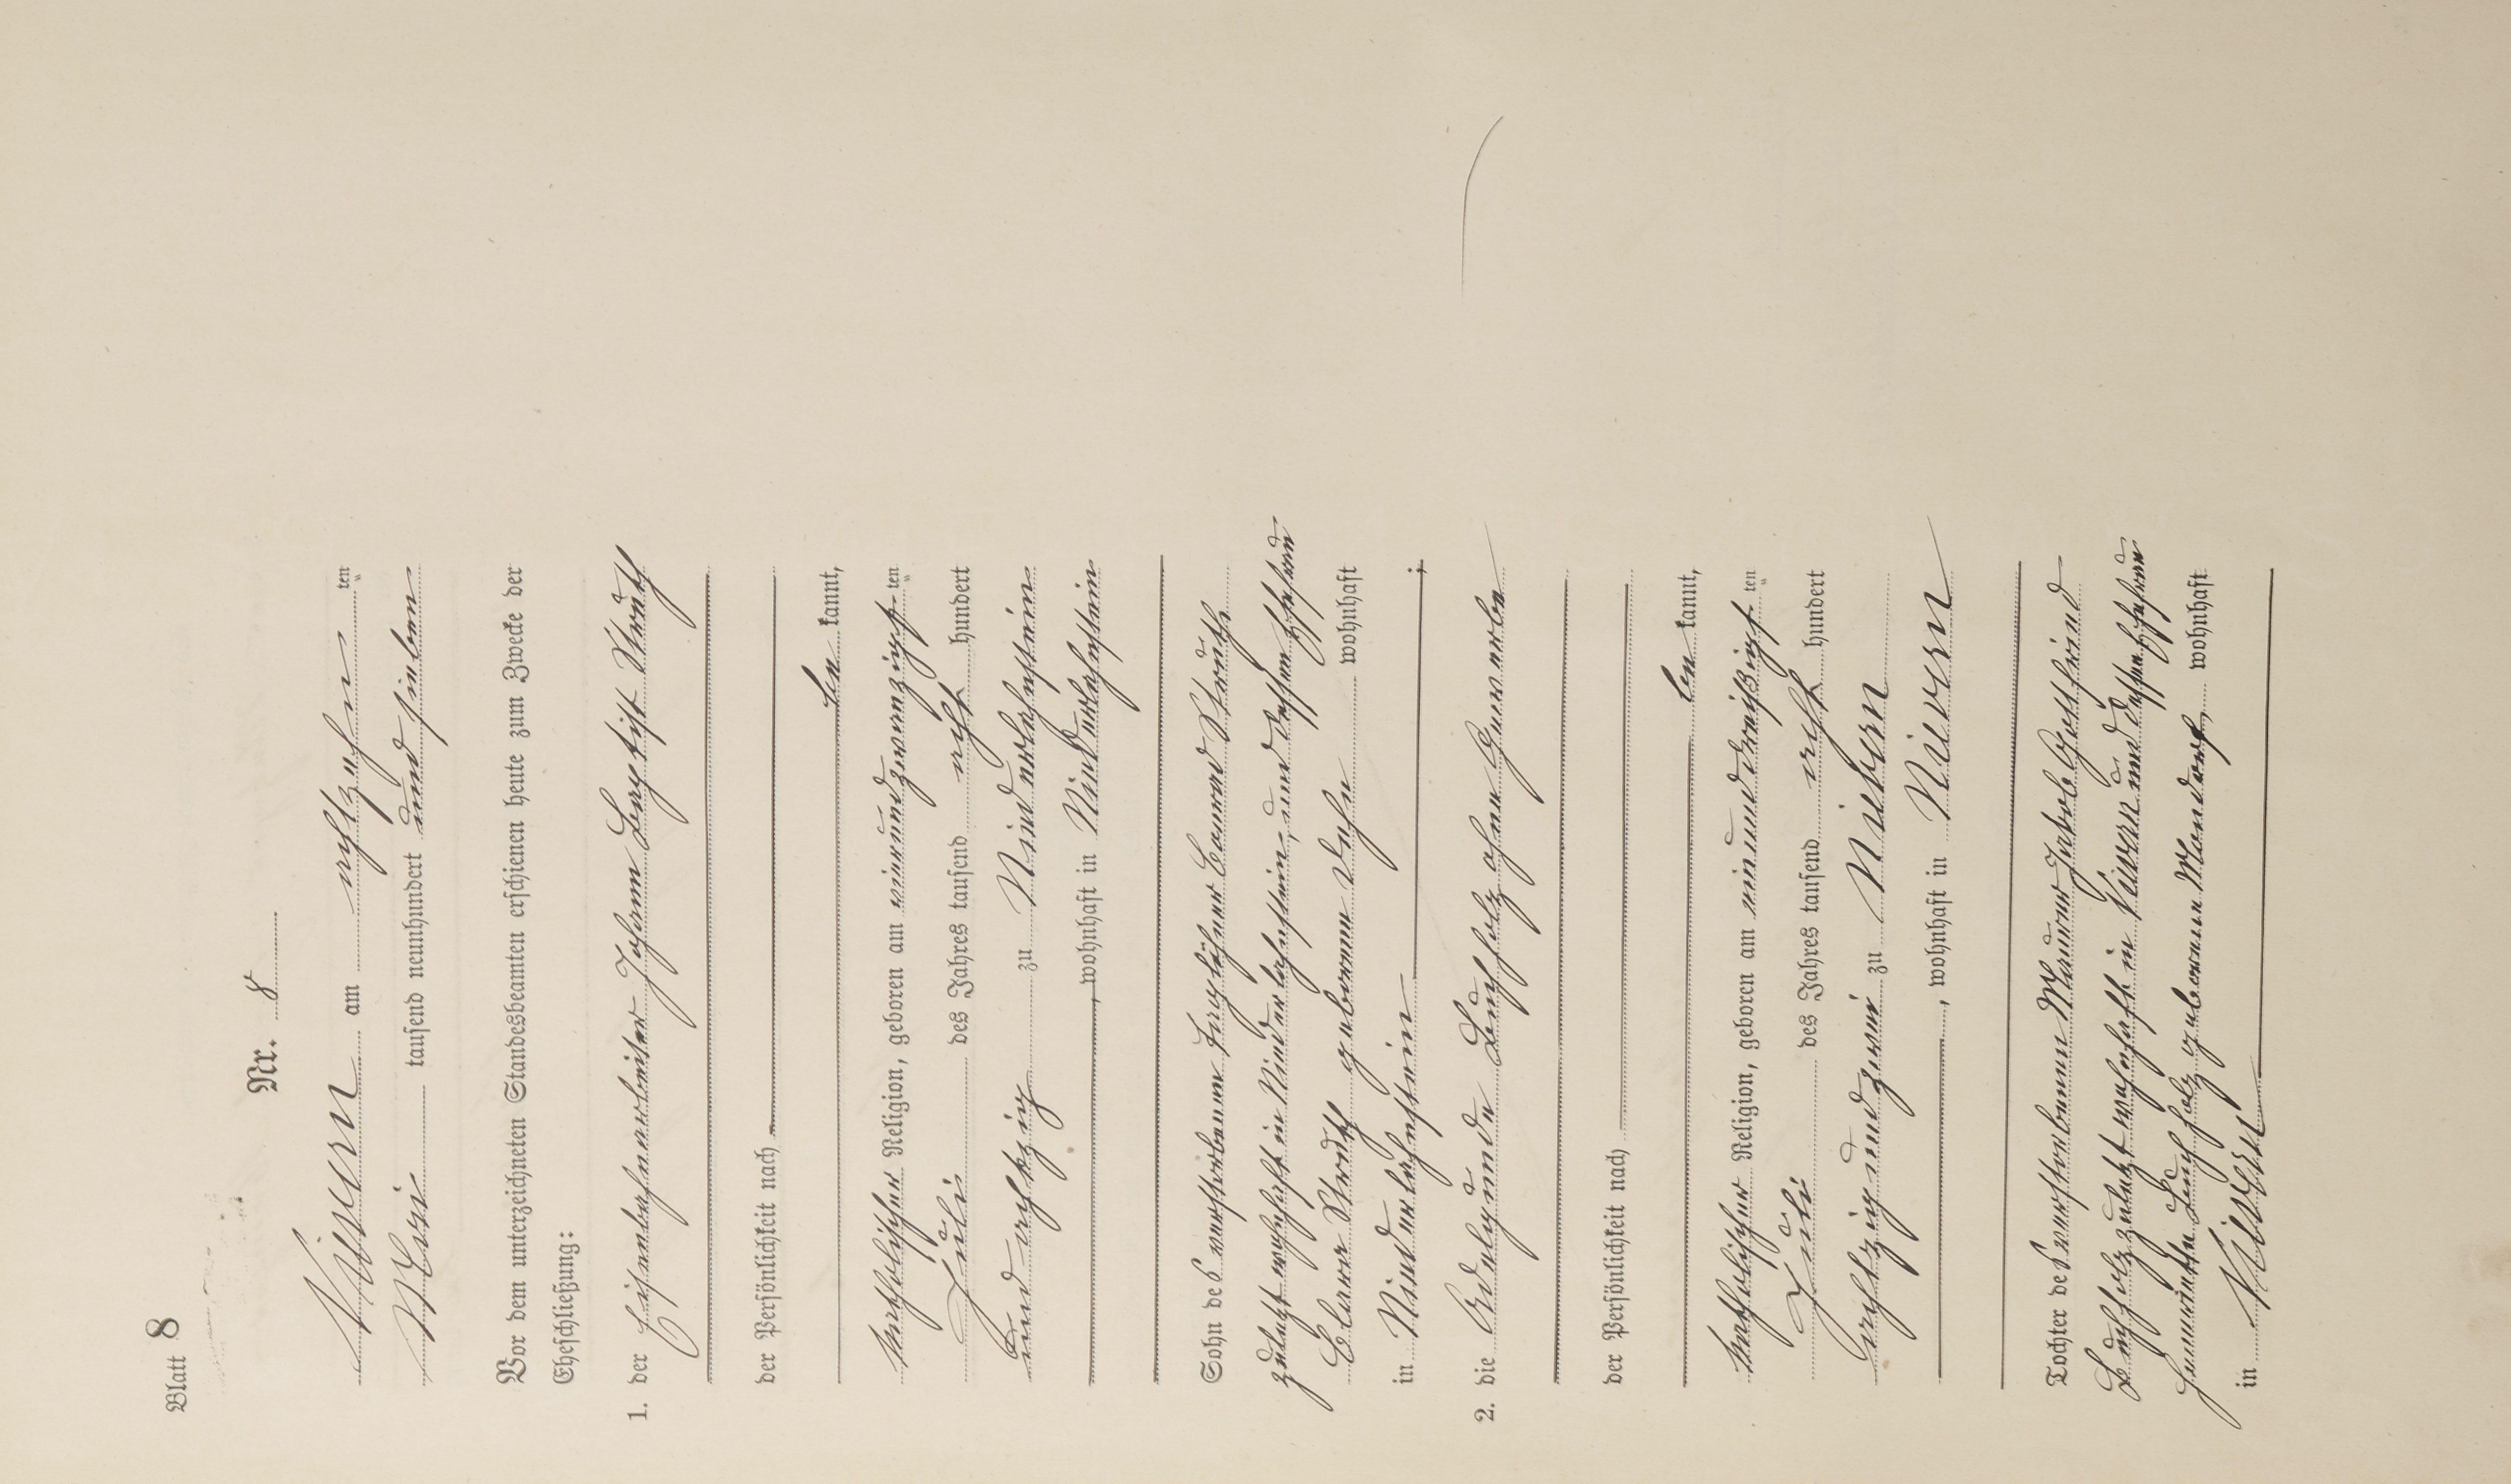 Blatt 8
Nr. 8
Nievern am achtzehn ten
Mai tausend neunhundert und sieben
Vor dem unterzeichneten Standesbeamten erschienen heute zum Zwecke der
Eheschließung:
1. der Eisenbahnarbeiter Johann Baptist Struth
der Persönlichkeit nach
be kannt,
katholischer Religion, geboren am einundzwanzigst ten
Juli des Jahres tausend acht hundert
und achtzig zu Niederlahnstein
, wohnhaft in Niederlahnstein
Sohn des verstorbenen Taglöhner Conrad Struth
zuletzt wohnhaft in Niederlahnstein, und dessen Ehefrau
Clara Struth geborene wohnhaft
in Niederlahnstein ;
2. die Adelgunde Buchholz ohne Gewerbe
der Persönlichkeit nach
be kannt,
katholischer Religion, geboren am einunddreißigst ten
Juli des Jahres tausend acht hundert
achtzig und zwei zu Nievern
, wohnhaft in Nievern
Tochter des verstorbenen Maurer Jakob Gottfried
Buchholz zuletzt wohnhaft in Nievern und dessen Ehefrau
Henriette Buchholz geborenen wohnhaft
in Nievern